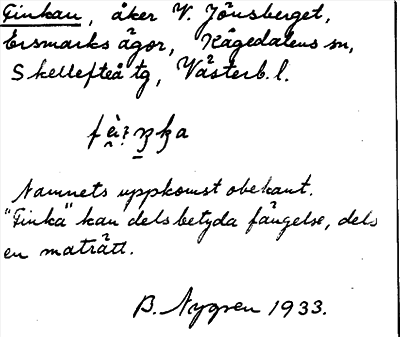 Finkan, åker V. Jönsberget,
Ersmarks ägor, Kågedalens sn,
Skellefteå tg, Västerb. l.
Namnets uppkomst obekant.
"Finka" kan dels betyda fängelse, dels
en maträtt.
B. Nygren 1933.